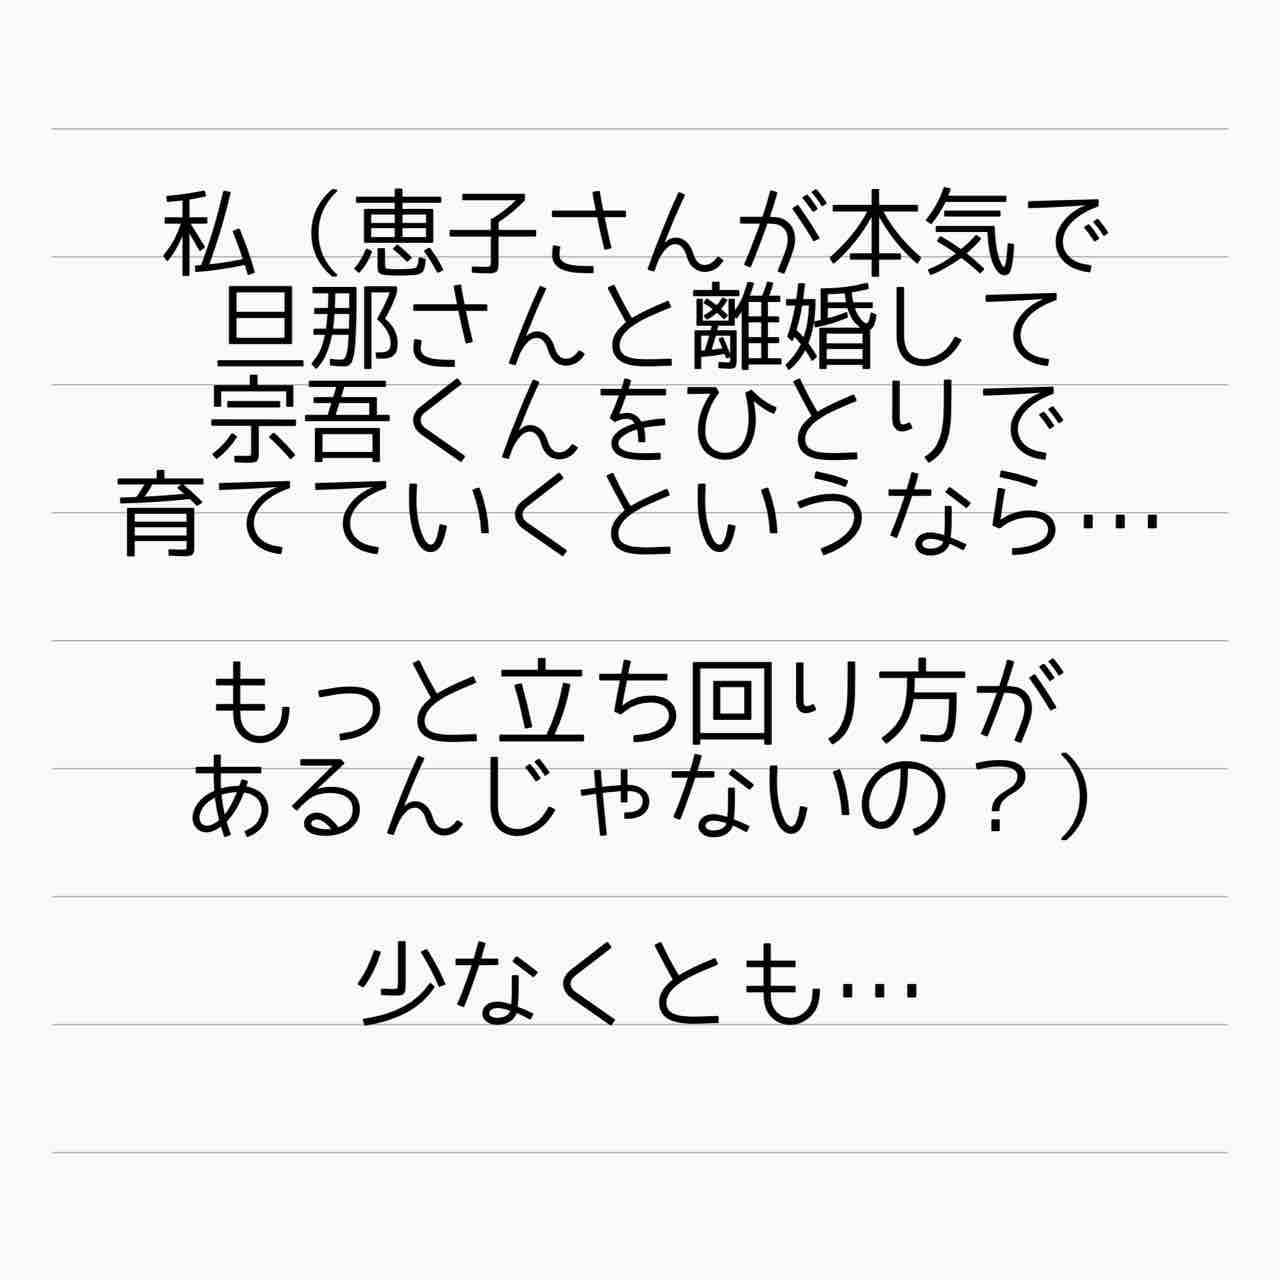 私（恵子さんが本気で
旦那さんと離婚して
宗吾くんをひとりで
育てていくというなら…
もっと立ち回り方が
あるんじゃないの？）
少なくとも…